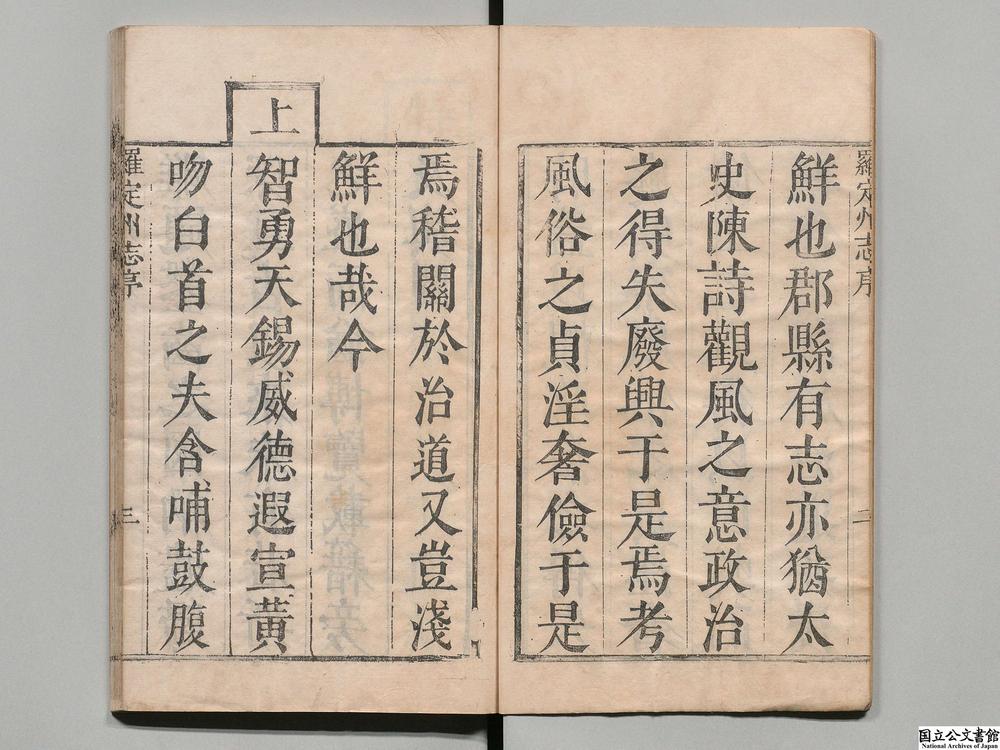 羅定州志序
二
鮮也郡縣有志亦猶太
史陳詩觀風之意政治
之得失廢興于是焉考
風俗之貞淫奢儉于是
焉稽關於治道又豈淺
鮮也哉今
上
智勇天錫威德遐宣黃
吻白首之夫含哺鼓腹
羅定州志序
三
国立公文書館
National Archives of Japan